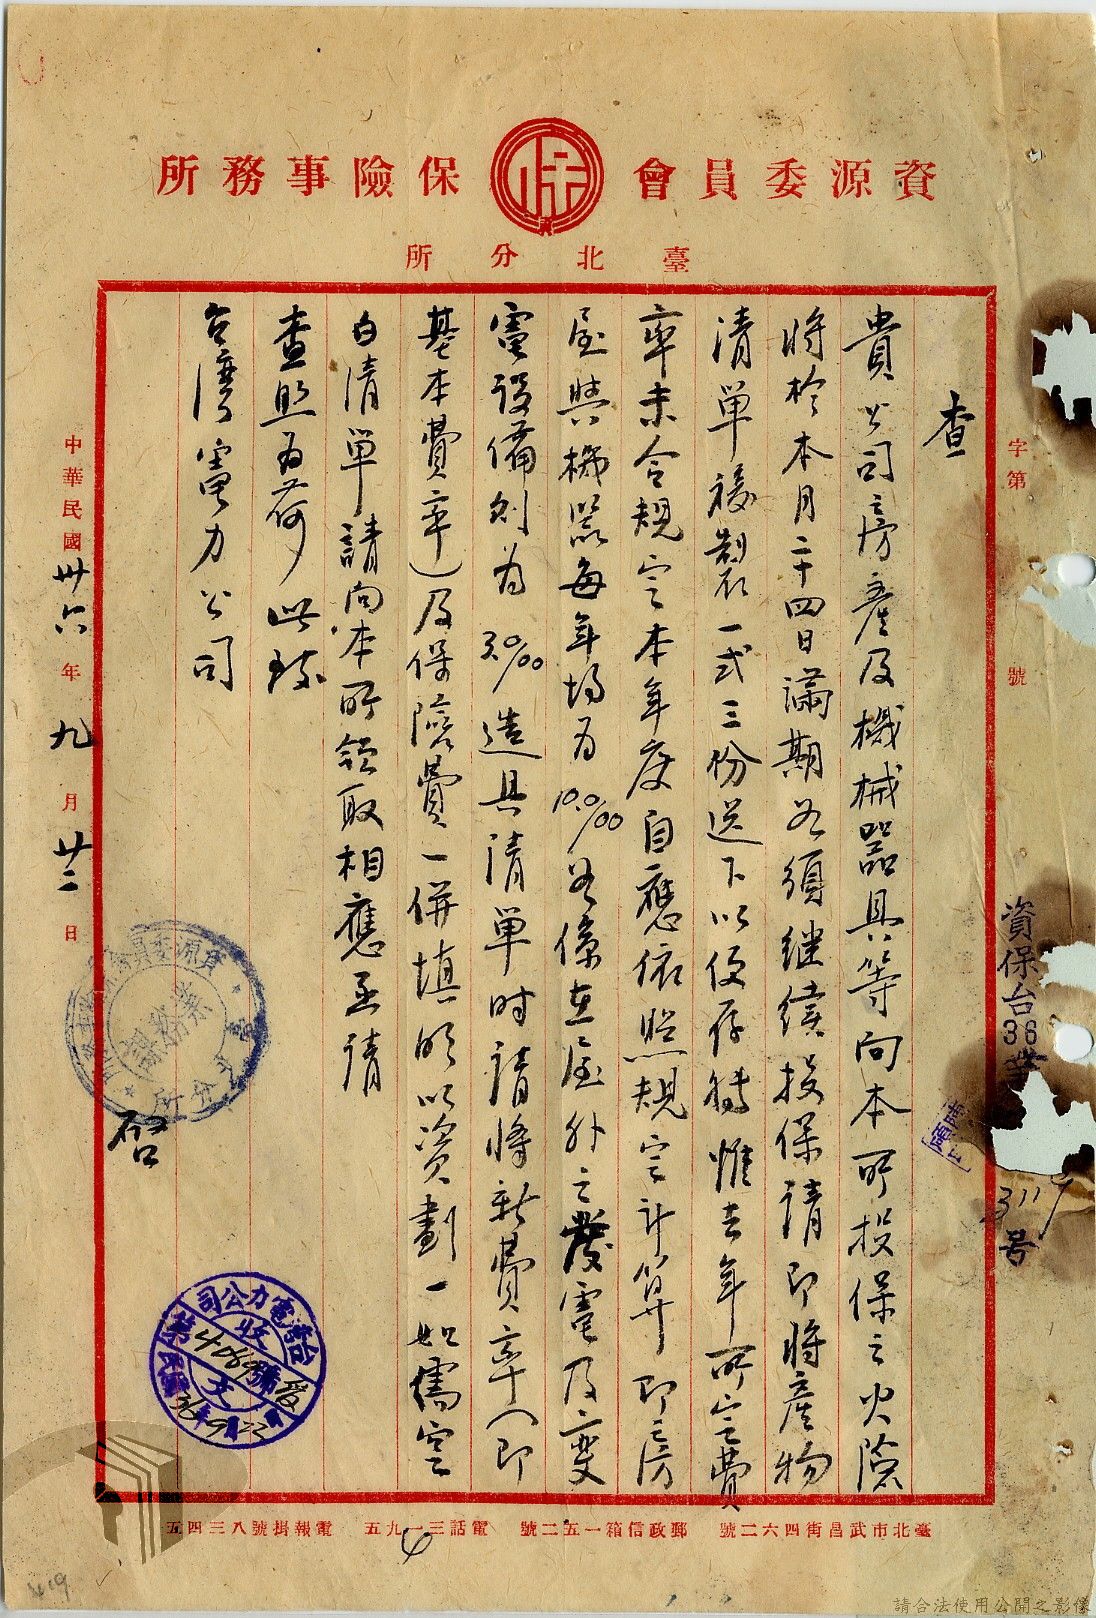 資源委員會保險事務所
臺北分所
字第號
資保台36業
3119号
查
貴公司房產及機械器具等向本所投保之火險
將於本月二十四日滿期如須繼續投保請即將產物
清單複製一式三份送下以便存轉惟去年所定費
率未合規定本年度自應依照規定計算即房
屋與機器每年均為10.0/00若係在屋外之發電及變
電設備則為3.0/00造具清單時請將新費率(即
基本費率)及保險費一併填明以資劃一如需空
白清單請向本所領取相應函請
查照為荷此致
台灣電力公司
啓
中華民國卅六年九月廿二日
臺灣電力公司
收文
第4069號
36年9月23日
臺北市武昌街四六二號 郵政信箱一五二號 電話三一九五 電報掛號八三四五
請合法使用公開之影像